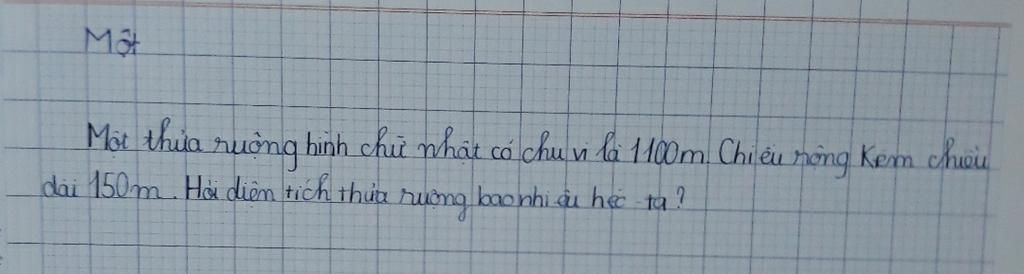 Một
Một thửa ruộng hình chữ nhật có chu vi là 1100m. Chiều rộng kém chiều
dài 150m. Hỏi diện tích thửa ruộng bao nhiêu héc-ta?